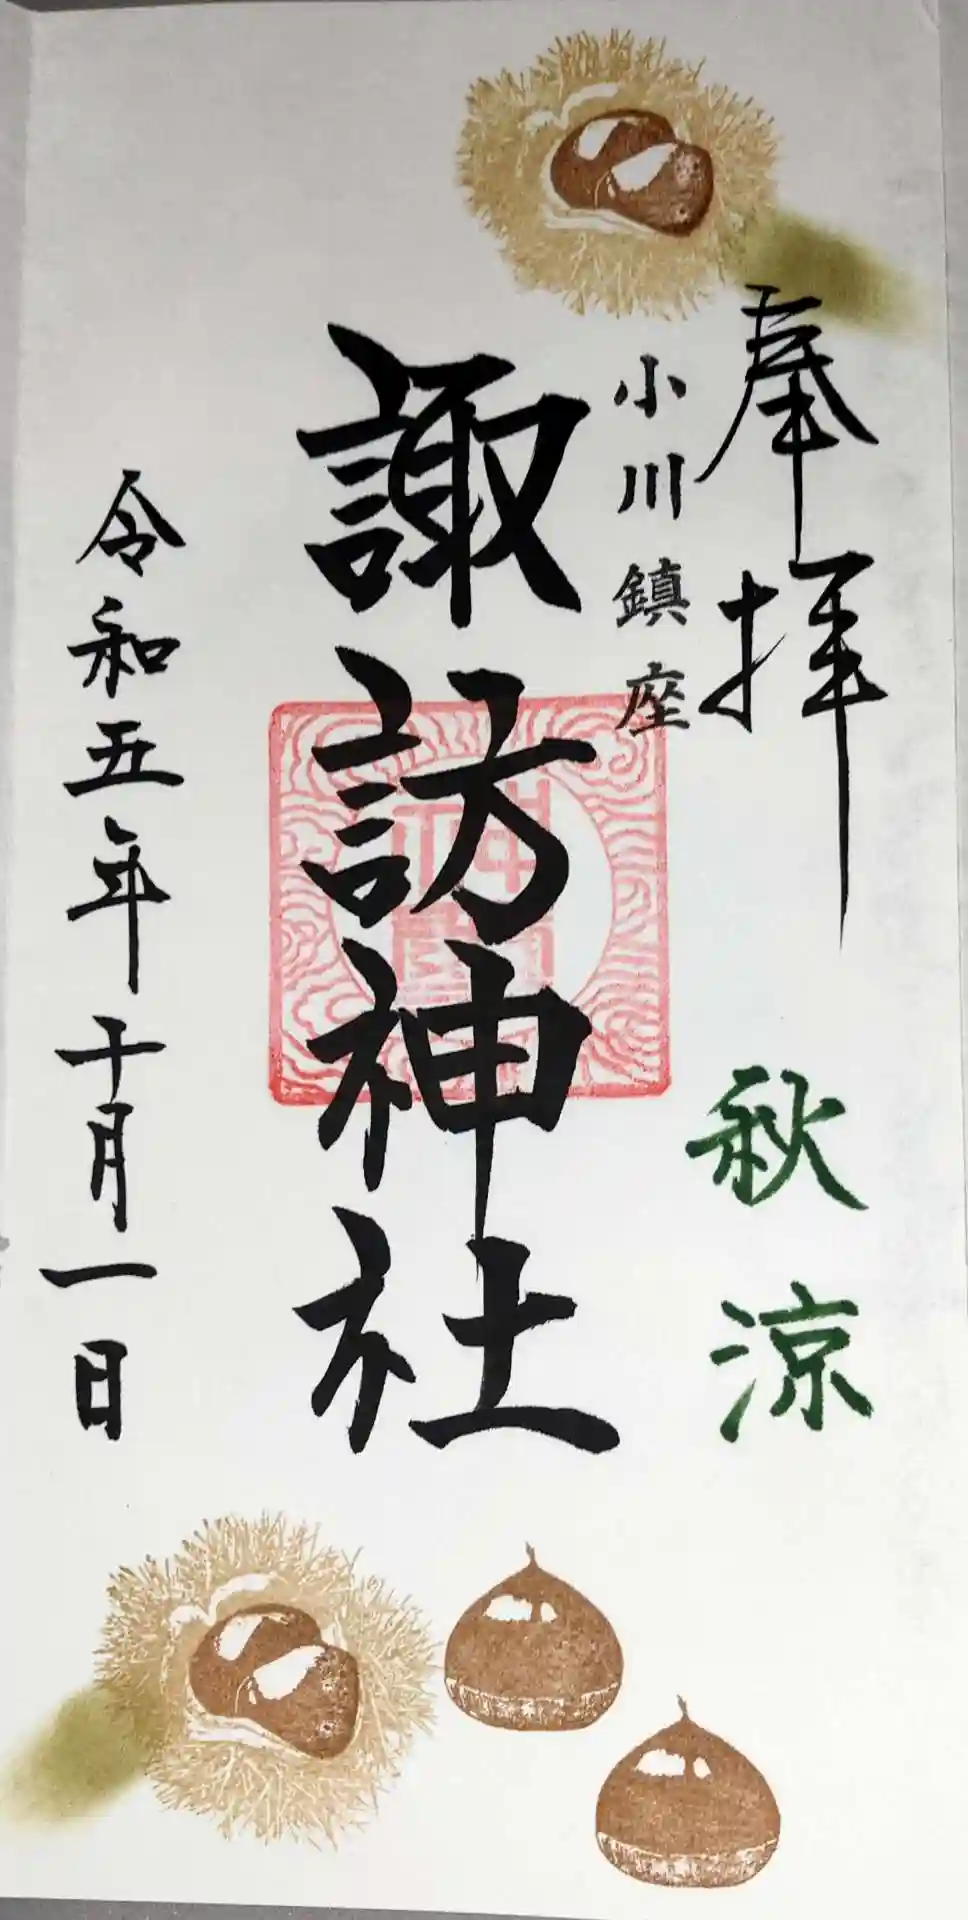 奉拝
秋涼
小川鎮座
諏訪神社
令和五年十月一日